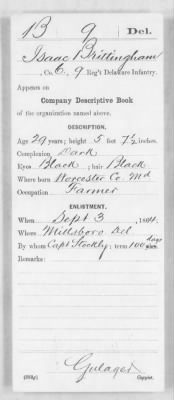 B 9 Del.
Isaac Brittingham
, Co. C, 9 Reg't Delaware Infantry.
Appears on
Company Descriptive Book
of the organization named above.
DESCRIPTION.
Age 29 years; height 5 feet 7½ inches.
Complexion Dark
Eyes Black; hair Black
Where born Worcester Co Md
Occupation Farmer
ENLISTMENT.
When Sept 3, 1864.
Where Millsboro Del
By whom Capt Stockly; term 100 days
Remarks:
Gulager
Copyist.